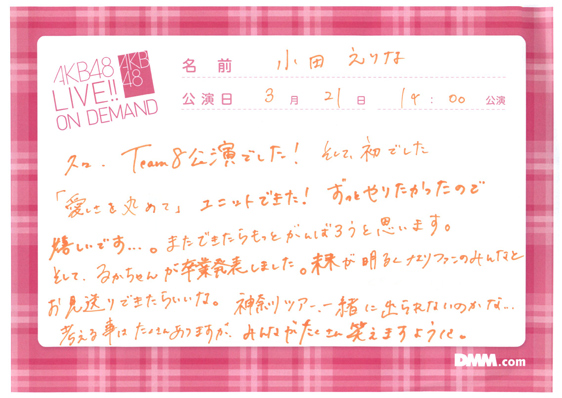 AKB48
LIVE!!
ON DEMAND
AKB
48
名前 小田えりな
公演日 3月21日 14:00 公演
Team8公演でした! そして、初でした
「愛しさを丸めて」ユニットできた! ずっとやりたかったので
嬉しいです...。またできたらもっとがんばろうと思います。
そして、るかちゃんが卒業発表しました。未来が明るくファンのみんなと
お見送りできたらいいな。神奈川ツアー、一緒に出られないのかな...
考える事はたくさんありますが、みんながたくさん笑えますように。
DMM.com